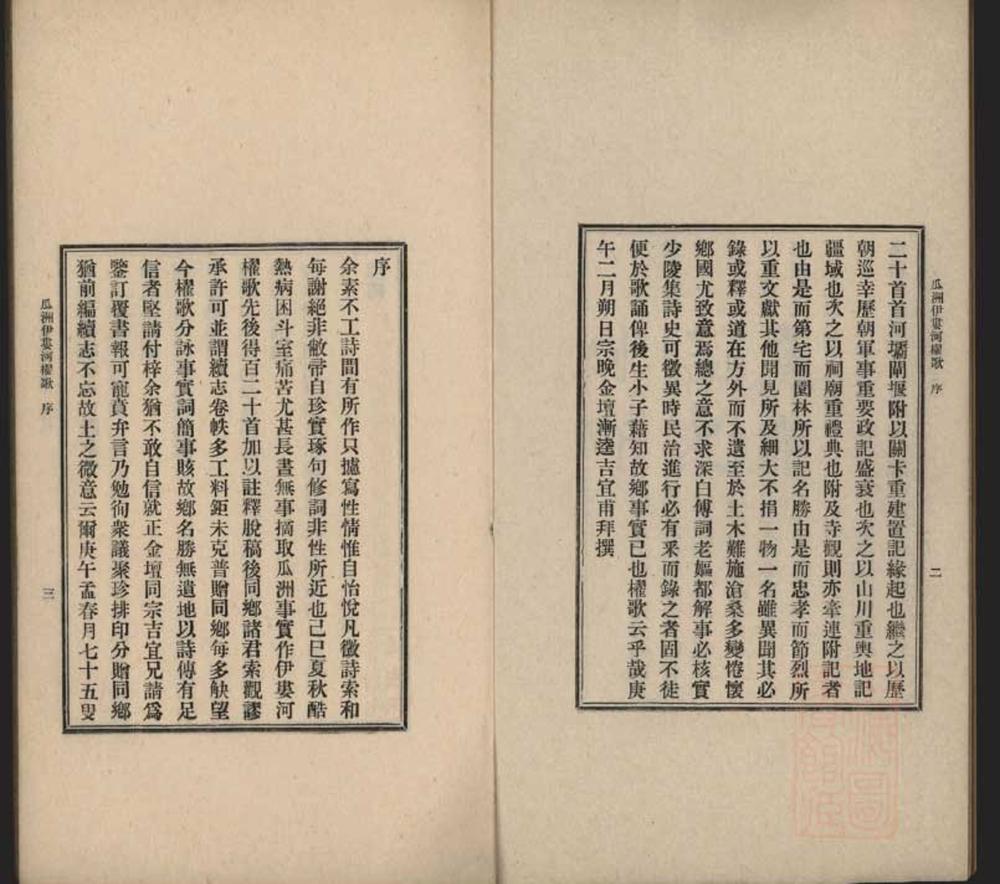 瓜洲伊婁河櫂歌 序
二
二十首首河壩閘堰附以關卡重建置記緣起也繼之以歷
朝巡幸歷朝軍事重要政記盛衰也次之以山川重輿地記
疆域也次之以祠廟重禮典也附及寺觀則亦牽連附記者
也由是而第宅而園林所以記名勝由是而忠孝而節烈所
以重文獻其他聞見所及細大不捐一物一名雖異聞其必
錄或釋或道在方外而不遺至於土木難施滄桑多變惓懷
鄉國尤致意焉總之意不求深白傅詞老嫗都解事必核實
少陵集詩史可徵異時民治進行必有釆而錄之者固不徒
便於歌誦俾後生小子藉知故鄉事實已也櫂歌云乎哉庚
午二月朔日宗晚金壇漸逵吉宜甫拜撰
序
余素不工詩間有所作只攄寫性情惟自怡悅凡徵詩索和
每謝絕非敝帚自珍實琢句修詞非性所近也己巳夏秋酷
熱病困斗室痛苦尤甚長晝無事摘取瓜洲事實作伊婁河
櫂歌先後得百二十首加以註釋脫稿後同鄉諸君索觀謬
承許可並謂續志卷帙多工料鉅未克普贈同鄉每多觖望
今櫂歌分詠事實詞簡事賅故鄉名勝無遺地以詩傳有足
信者堅請付梓余猶不敢自信就正金壇同宗吉宜兄請爲
鑒訂覆書報可寵賁弁言乃勉徇衆議聚珍排印分贈同鄉
猶前編續志不忘故土之微意云爾庚午孟春月七十五叟
瓜洲伊婁河櫂歌 序
三